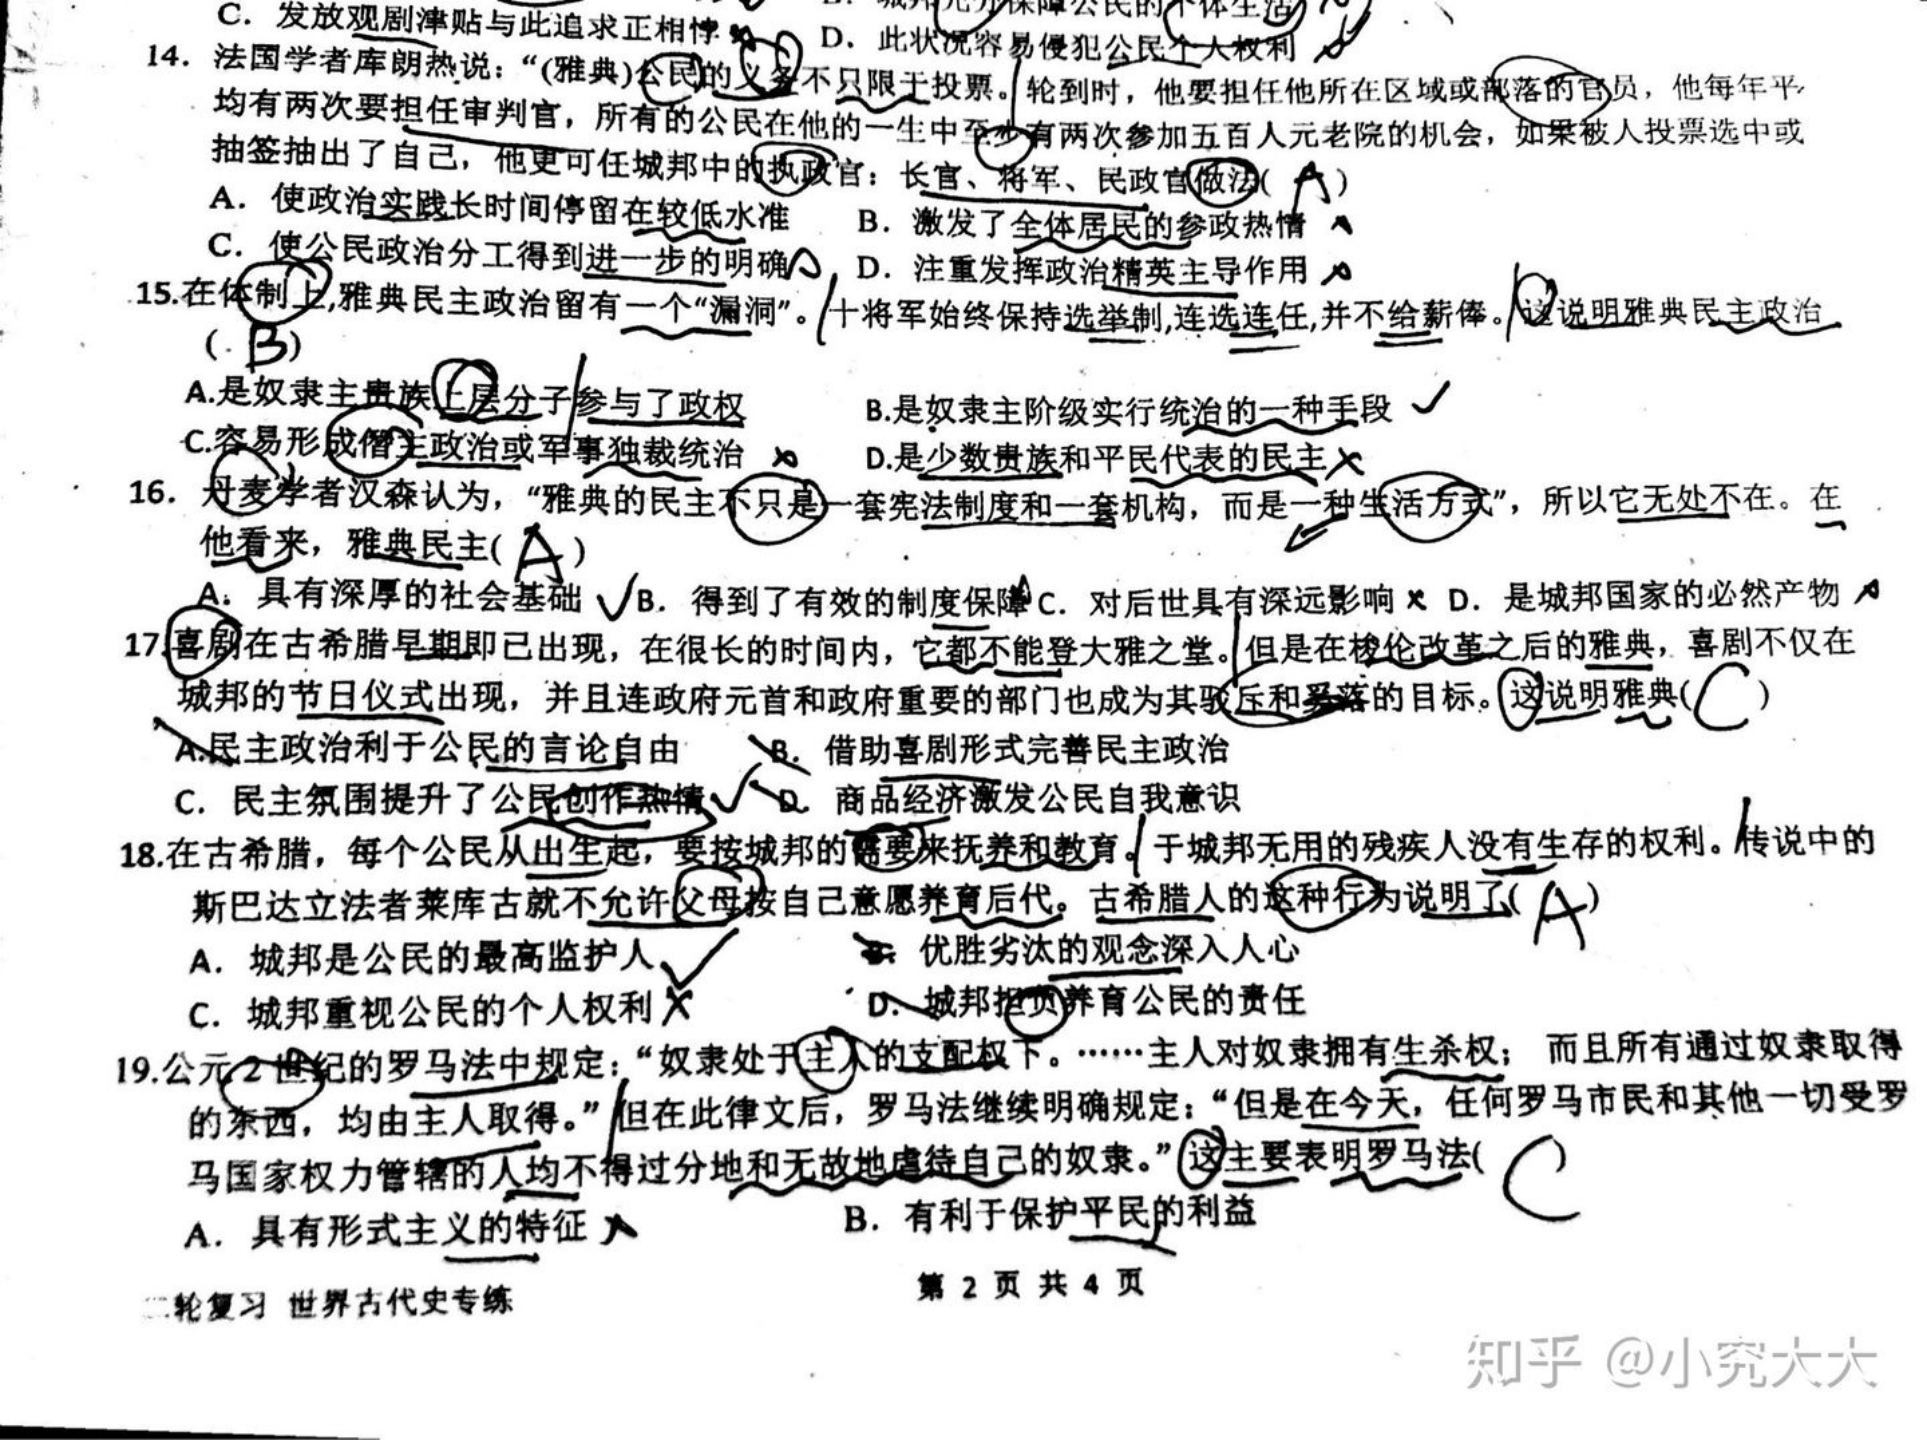 C. 发放观剧津贴与此追求正相悖
D. 此状况容易侵犯公民个人权利
14. 法国学者库朗热说：“(雅典)公民的义务不只限于投票。轮到时，他要担任他所在区域或部落的官员，他每年平
均有两次要担任审判官，所有的公民在他的一生中至少有两次参加五百人元老院的机会，如果被人投票选中或
抽签抽出了自己，他更可任城邦中的执政官：长官、将军、民政官做法( A )
A. 使政治实践长时间停留在较低水准 B. 激发了全体居民的参政热情
C. 使公民政治分工得到进一步的明确 D. 注重发挥政治精英主导作用
15.在体制上,雅典民主政治留有一个“漏洞”。十将军始终保持选举制,连选连任,并不给薪俸。这说明雅典民主政治
( B )
A.是奴隶主贵族上层分子参与了政权 B.是奴隶主阶级实行统治的一种手段
C.容易形成僭主政治或军事独裁统治 D.是少数贵族和平民代表的民主
16. 丹麦学者汉森认为，“雅典的民主不只是一套宪法制度和一套机构，而是一种生活方式”，所以它无处不在。在
他看来，雅典民主( A )
A. 具有深厚的社会基础 B. 得到了有效的制度保障 C. 对后世具有深远影响 D. 是城邦国家的必然产物
17.喜剧在古希腊早期即已出现，在很长的时间内，它都不能登大雅之堂。但是在梭伦改革之后的雅典，喜剧不仅在
城邦的节日仪式出现，并且连政府元首和政府重要的部门也成为其驳斥和奚落的目标。这说明雅典( C )
A.民主政治利于公民的言论自由 B. 借助喜剧形式完善民主政治
C. 民主氛围提升了公民创作热情 D. 商品经济激发公民自我意识
18.在古希腊，每个公民从出生起，要按城邦的需要来抚养和教育。于城邦无用的残疾人没有生存的权利。传说中的
斯巴达立法者莱库古就不允许父母按自己意愿养育后代。古希腊人的这种行为说明了( A )
A. 城邦是公民的最高监护人 B. 优胜劣汰的观念深入人心
C. 城邦重视公民的个人权利 D. 城邦担负养育公民的责任
19.公元 2 世纪的罗马法中规定：“奴隶处于主人的支配权下。……主人对奴隶拥有生杀权； 而且所有通过奴隶取得
的东西，均由主人取得。”但在此律文后，罗马法继续明确规定：“但是在今天，任何罗马市民和其他一切受罗
马国家权力管辖的人均不得过分地和无故地虐待自己的奴隶。”这主要表明罗马法( C
A. 具有形式主义的特征 B. 有利于保护平民的利益
二轮复习 世界古代史专练 第 2 页 共 4 页
知乎 @小究大大